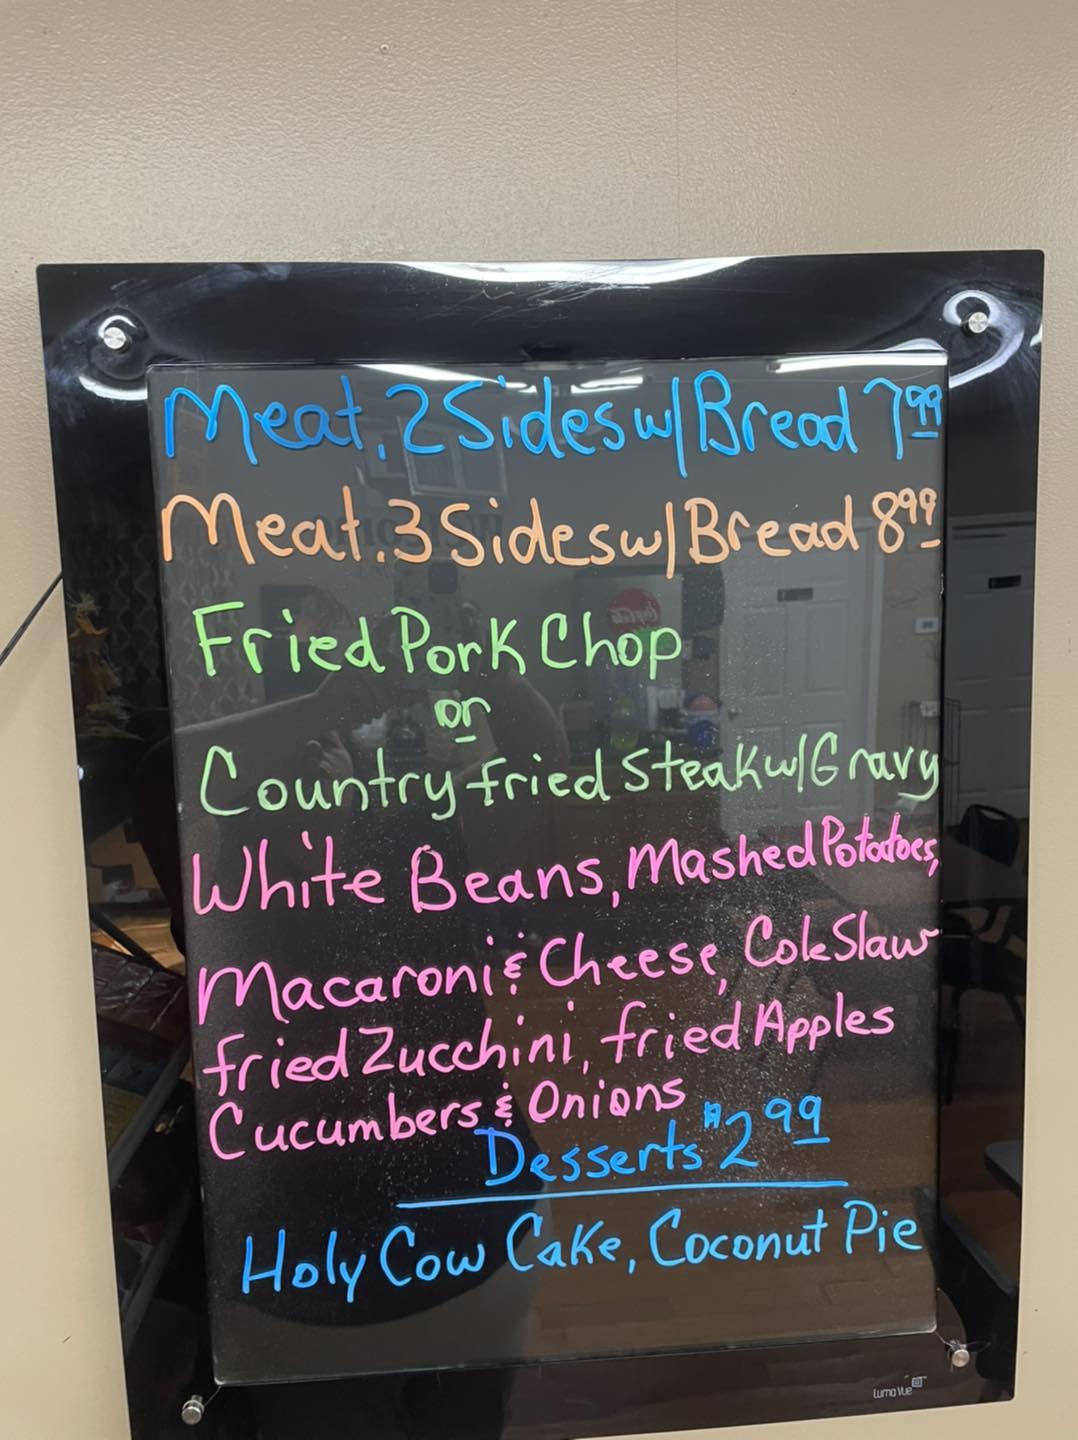 Meat, 2 Sides w/ Bread 7.99
Meat. 3 Sides w/ Bread 8.99
Fried Pork Chop
or
Country fried Steak w/ Gravy
White Beans, Mashed Potatoes,
Macaroni & Cheese, Cole Slaw
fried Zucchini, fried Apples
Cucumbers & Onions
Desserts $2.99
Holy Cow Cake, Coconut Pie
Luma Vue